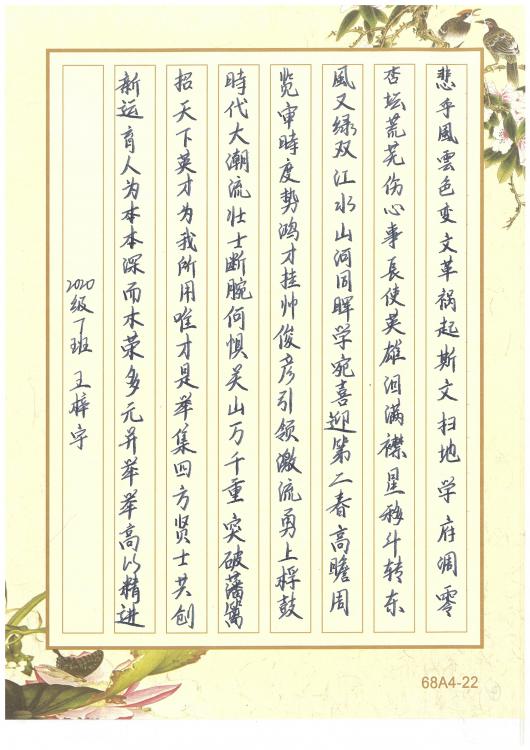 悲乎風雲色变文革祸起斯文扫地学府凋零
杏坛荒芜伤心事長使英雄泪满襟星移斗转东
風又绿双江水山河同晖学宛喜迎第二春高瞻周
览审時度势鸿才挂帅俊彦引领激流勇上桴鼓
時代大潮流壮士断腕何惧关山万千重突破藩篱
招天下英才为我所用唯才是举集四方贤士共创
新运育人为本本深而木荣多元并举举高以精进
2020级1班 王梓宇
68A4-22